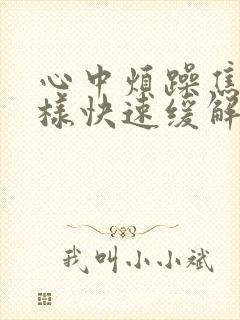 心中烦躁焦
样快速缓解
我叫小小斌